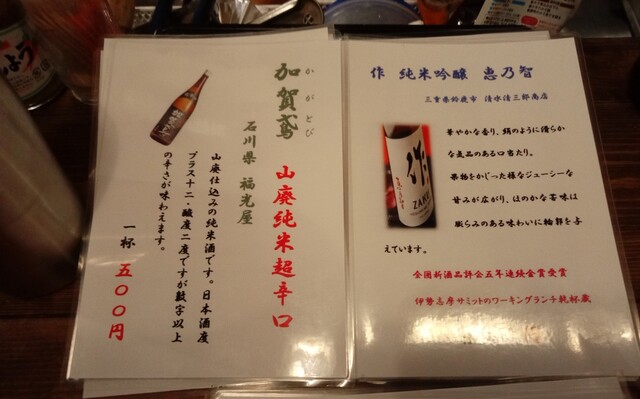 加賀鳶
かがとび
山廃純米超辛口
石川県 福光屋
山廃仕込みの純米酒です。日本酒度
プラス十二・酸度二度ですが数字以上
の辛さが味わえます。
一杯 五〇〇円
作 純米吟醸 恵乃智
三重県鈴鹿市 清水清三郎商店
華やかな香り、絹のように滑らか
な気品のある口当たり。
果物をかじった様なジューシーな
甘みが広がり、ほのかな苦味は
膨らみのある味わいに輪郭を与
えています。
全国新酒品評会五年連続金賞受賞
伊勢志摩サミットのワーキングランチ乾杯蔵
作
ZAKU